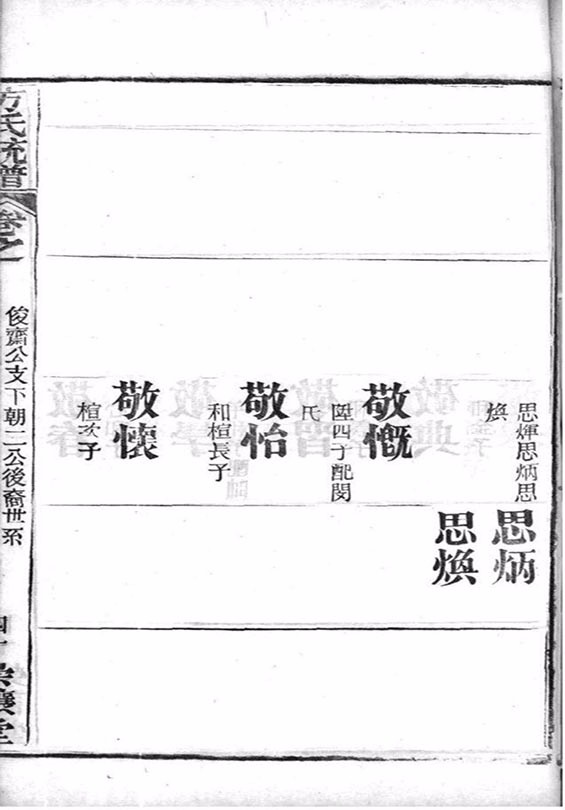 思煇思炳思
煥
敬慨
四子配閔
氏
敬怡
和楦長子
敬懷
楦次子
思炳
思煥
方氏統譜
卷之一
俊齋公支下朝二公後裔世系